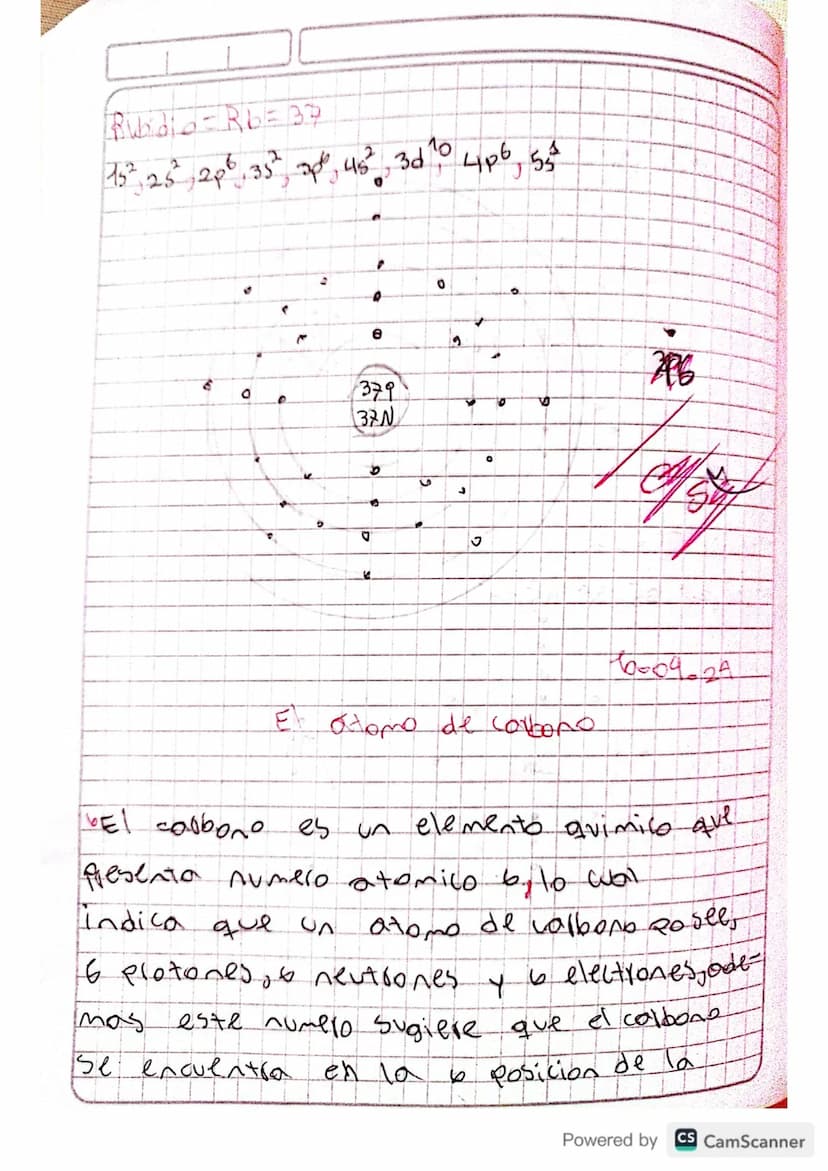 Rubidio = Rb = 37
1s², 2s², 2p⁶, 3s², 3p⁶, 4s², 3d¹⁰, 4p⁶, 5s¹
37P
37N
16-04-24
El átomo de carbono
El carbono es un elemento quimico que
presenta numero atomico 6, lo cual
indica que un atomo de carbono posee,
6 protones, 6 neutrones y 6 electrones, ade-
mas este numero sugiere que el carbono
se encuentra en la 6 posicion de la
Powered by CS CamScanner